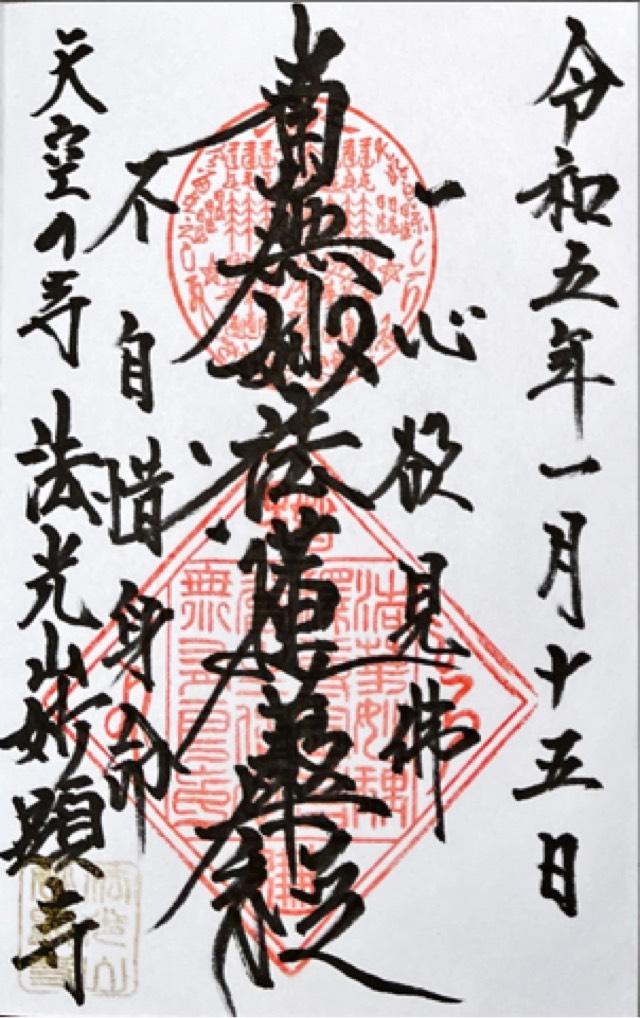 令和五年一月十五日
一心欲見佛
南無妙法蓮華経
不自惜身命
天空の寺 法光山妙顕寺